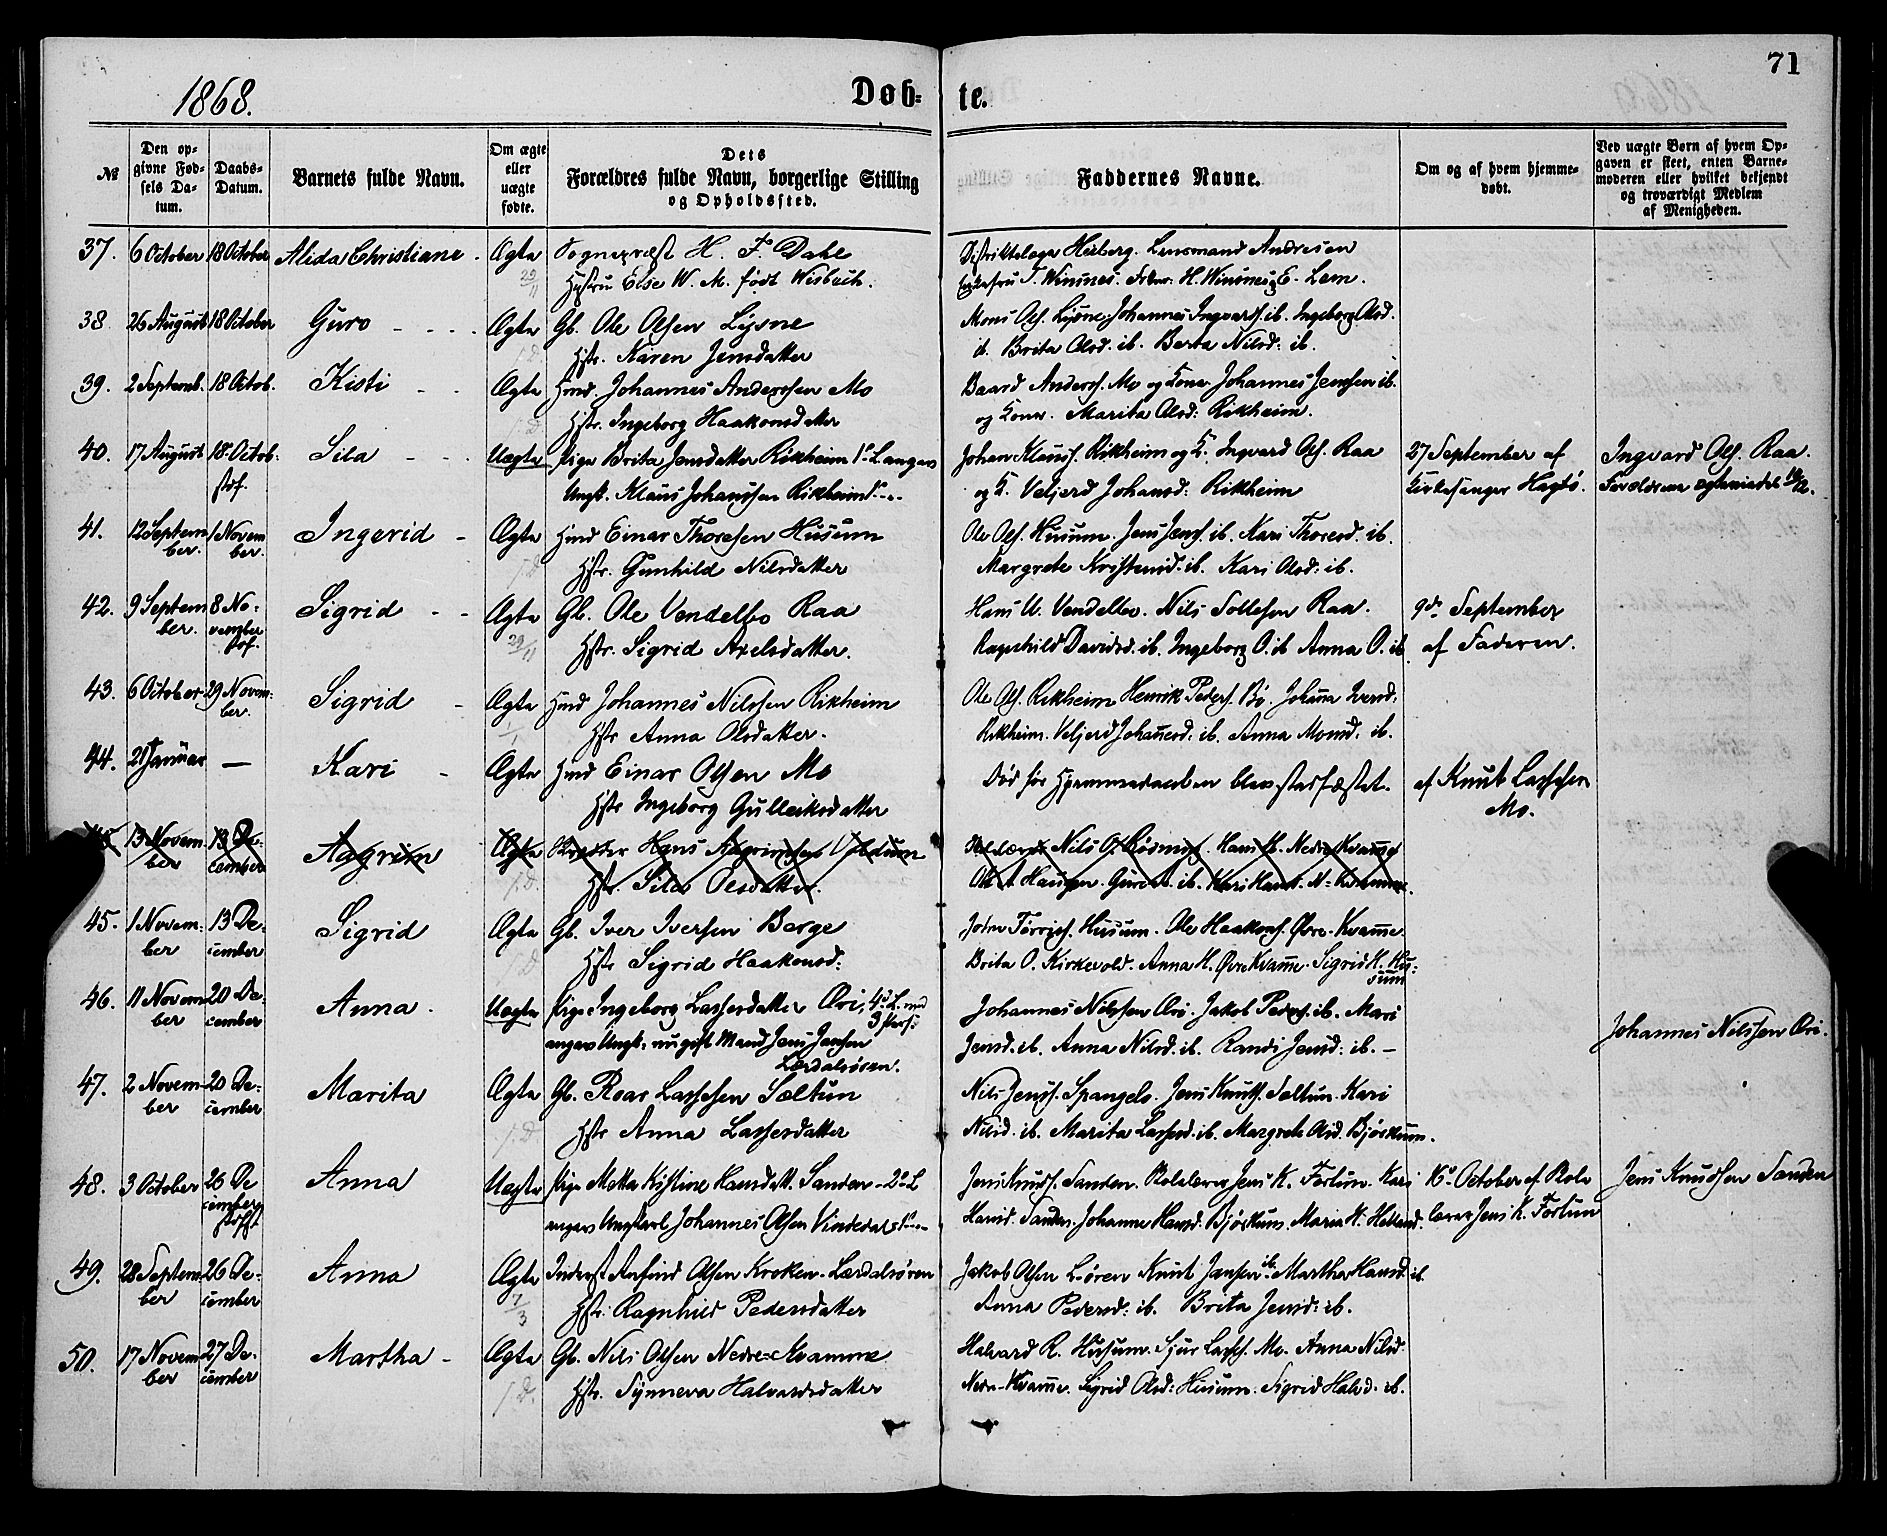 71
1868.
Døb-
te.
№
Den op-
givne Fød-
sels Da-
tum.
Daabs-
Datum.
Barnets fulde Navn.
Om ægte
eller
uægte
fødte.
Dets
Forældres fulde Navn, borgerlige Stilling
og Opholdssted.
Faddernes Navne.
Om og af hvem hjemme-
døbt.
Ved uægte Børn af hvem Op-
gaven er skeet, enten Barne-
moderen eller hvilket bekjendt
og troværdigt Medlem
af Menigheden.
37. 6 October 18 October Alida Christiane. Ægte Sognepræst H. F. Dahl
29/11 Hustru Else W. M. født Wisbech.
Heiberg. Lensmand Andresen
T. Winnes. H. Winnes E. Lem.
38 26 August 18 October Guro - - - Ægte Gb. Ole Olsen Lysne
Hstr. Karen Jensdatter
Mons Ols. Lysne. Johannes Ingvards. ib. Ingeborg Olsd.
ib. Brita Olsd. ib. Berta Nilsd: ib.
39. 2 Septemb. 18 Octob. Kisti - - Ægte Hmd. Johannes Anderssen Mo
Hstr. Ingeborg Haakonsdatter
Baard Anderss. Mo og Kone Johannes Jenssen ib.
og Kone. Marita Olsd: Rikheim.
40. 17 August 18 Octob. Sila - - - Uægte Pige Brita Jensdatter Rikheim 1ste Langen
stdf. Ungk. Klaus Johanssen Rikheim
Johan Klauss. Rikheim og K. Ingvard Ols. Raa
og K. Veljerd Johansd: Rikheim
27 September af
Kirkesanger Hagbø.
Ingvard Ols. Raa.
41. 12 Septem 1 Novem
ber. ber.
Ingerid - Ægte Hmd Einar Thoresen Husum
Hstr. Gunhild Nilsdatter
Ole Ols. Husum. Jens Jens. ib. Kari Thoresd. ib.
Margrete Kristensd. ib. Kari Olsd: ib.
42. 9 Septem 8 No-
ber. vember
stdf.
Sigrid - - Ægte Gb. Ole Vendelbo Raa
29/11 Hstr. Sigrid Axelsdatter.
Hans U. Vendelbo. Nils Tollefsen Raa.
Ragnhild Davidsd. ib. Ingeborg O. ib Anna O. ib.
9de September
af Faderen.
43. 6 October 29 Novem-
ber.
Sigrid - Ægte Hmd Johannes Nilssen Rikheim
Hstr Anna Olsdatter.
Ole Ols. Rikheim Henrik Peders. Bø. Johanna Iversd.
Rikheim. Veljerd Johannesd. ib. Anna Monsd. ib.
44. 21 Januar — Kari - Ægte Hmd Einar Olsen Mo
Hstr Ingeborg Gulleiksdatter
Død før Hjemmedaaben blev stadfæstet.
af Knut Lasssen
Mo.
45 13 Novem- 13 De-
ber cember
Aagrim Ægte Hans Voldum
Hstr. Sila Olsdatter.
Nils O. Hans H. Nedre Kvamme
Haugen. ib. Kari Hansd. N. Kvamme.
45. 1 Novem- 13 De-
ber cember
Sigrid Ægte Gb. Iver Iversen Berge
Hstr Sigrid Haakonsd:
John Tørriss. Husum. Ole Haakons. Øvre-Kvamme
Brita O. Kirkevold. Anna H. Øvre Kvamme. Sigrid H. Hu-
sum
46. 11 Novem 20 De-
ber cember
Anna. Uægte Pige Ingeborg Lassesdatter Øri, 4de L. med
3 Pers.
angav Ungk. nu gift Mand Jens Jensen
Lærdalsøren.
Johannes Nilssen Øri. Jakob Peders. ib. Mari
Jensd. ib. Anna Nilsd. ib. Randi Jensd: ib. -
Johannes Nilssen Øri.
47. 2 Novem- 20 De-
ber cember
Marita Ægte Gb. Roar Lasssen Sæltun
Hstr Anna Lassesdatter
Nils Jenss. Spangelo. Jens Knuts. Saltun. Kari
Nilsd. ib. Marita Lassesd. ib. Margrete Olsd. Bjørkum.
48. 3 October 26 De
cember
stdf.
Anna Uægte Pige Metta Kistine Hansdatt. Sanden - 2det L
angav Ungkarl Johannes Olsen Vindedal
Jens Knuds. Sanden. Rolelærer Jens K. Fortun. Kari
Hansd. Sanden. Johanne Hansd. Bjørkum. Maria H. Helland.
October af Role
lærer Jens K. Fortun
Jens Knudsen Sanden
49. 28 Septem- 26 De-
ber cember
Anna Ægte Inderst Anfind Olsen Kroken. Lærdalsøren
7/3 Hstr. Ragnhild Pedersdatter
Jakob Olsen Løren Knut Jansen ib. Martha Hansd. ib.
Anna Pedersd: ib. Brita Jensd: ib.
50. 17 Novem 27 De-
ber cember
Martha - Ægte Gb. Nils Olsen Nedre-Kvamme
Hstr. Synneva Halvardsdatter
Halvard R. Husum. Sjur Lasss. Mo. Anna Nilsd.
Nedr-Kvamme. Sigrid Olsd: Husum. Sigrid Halvd. ib.